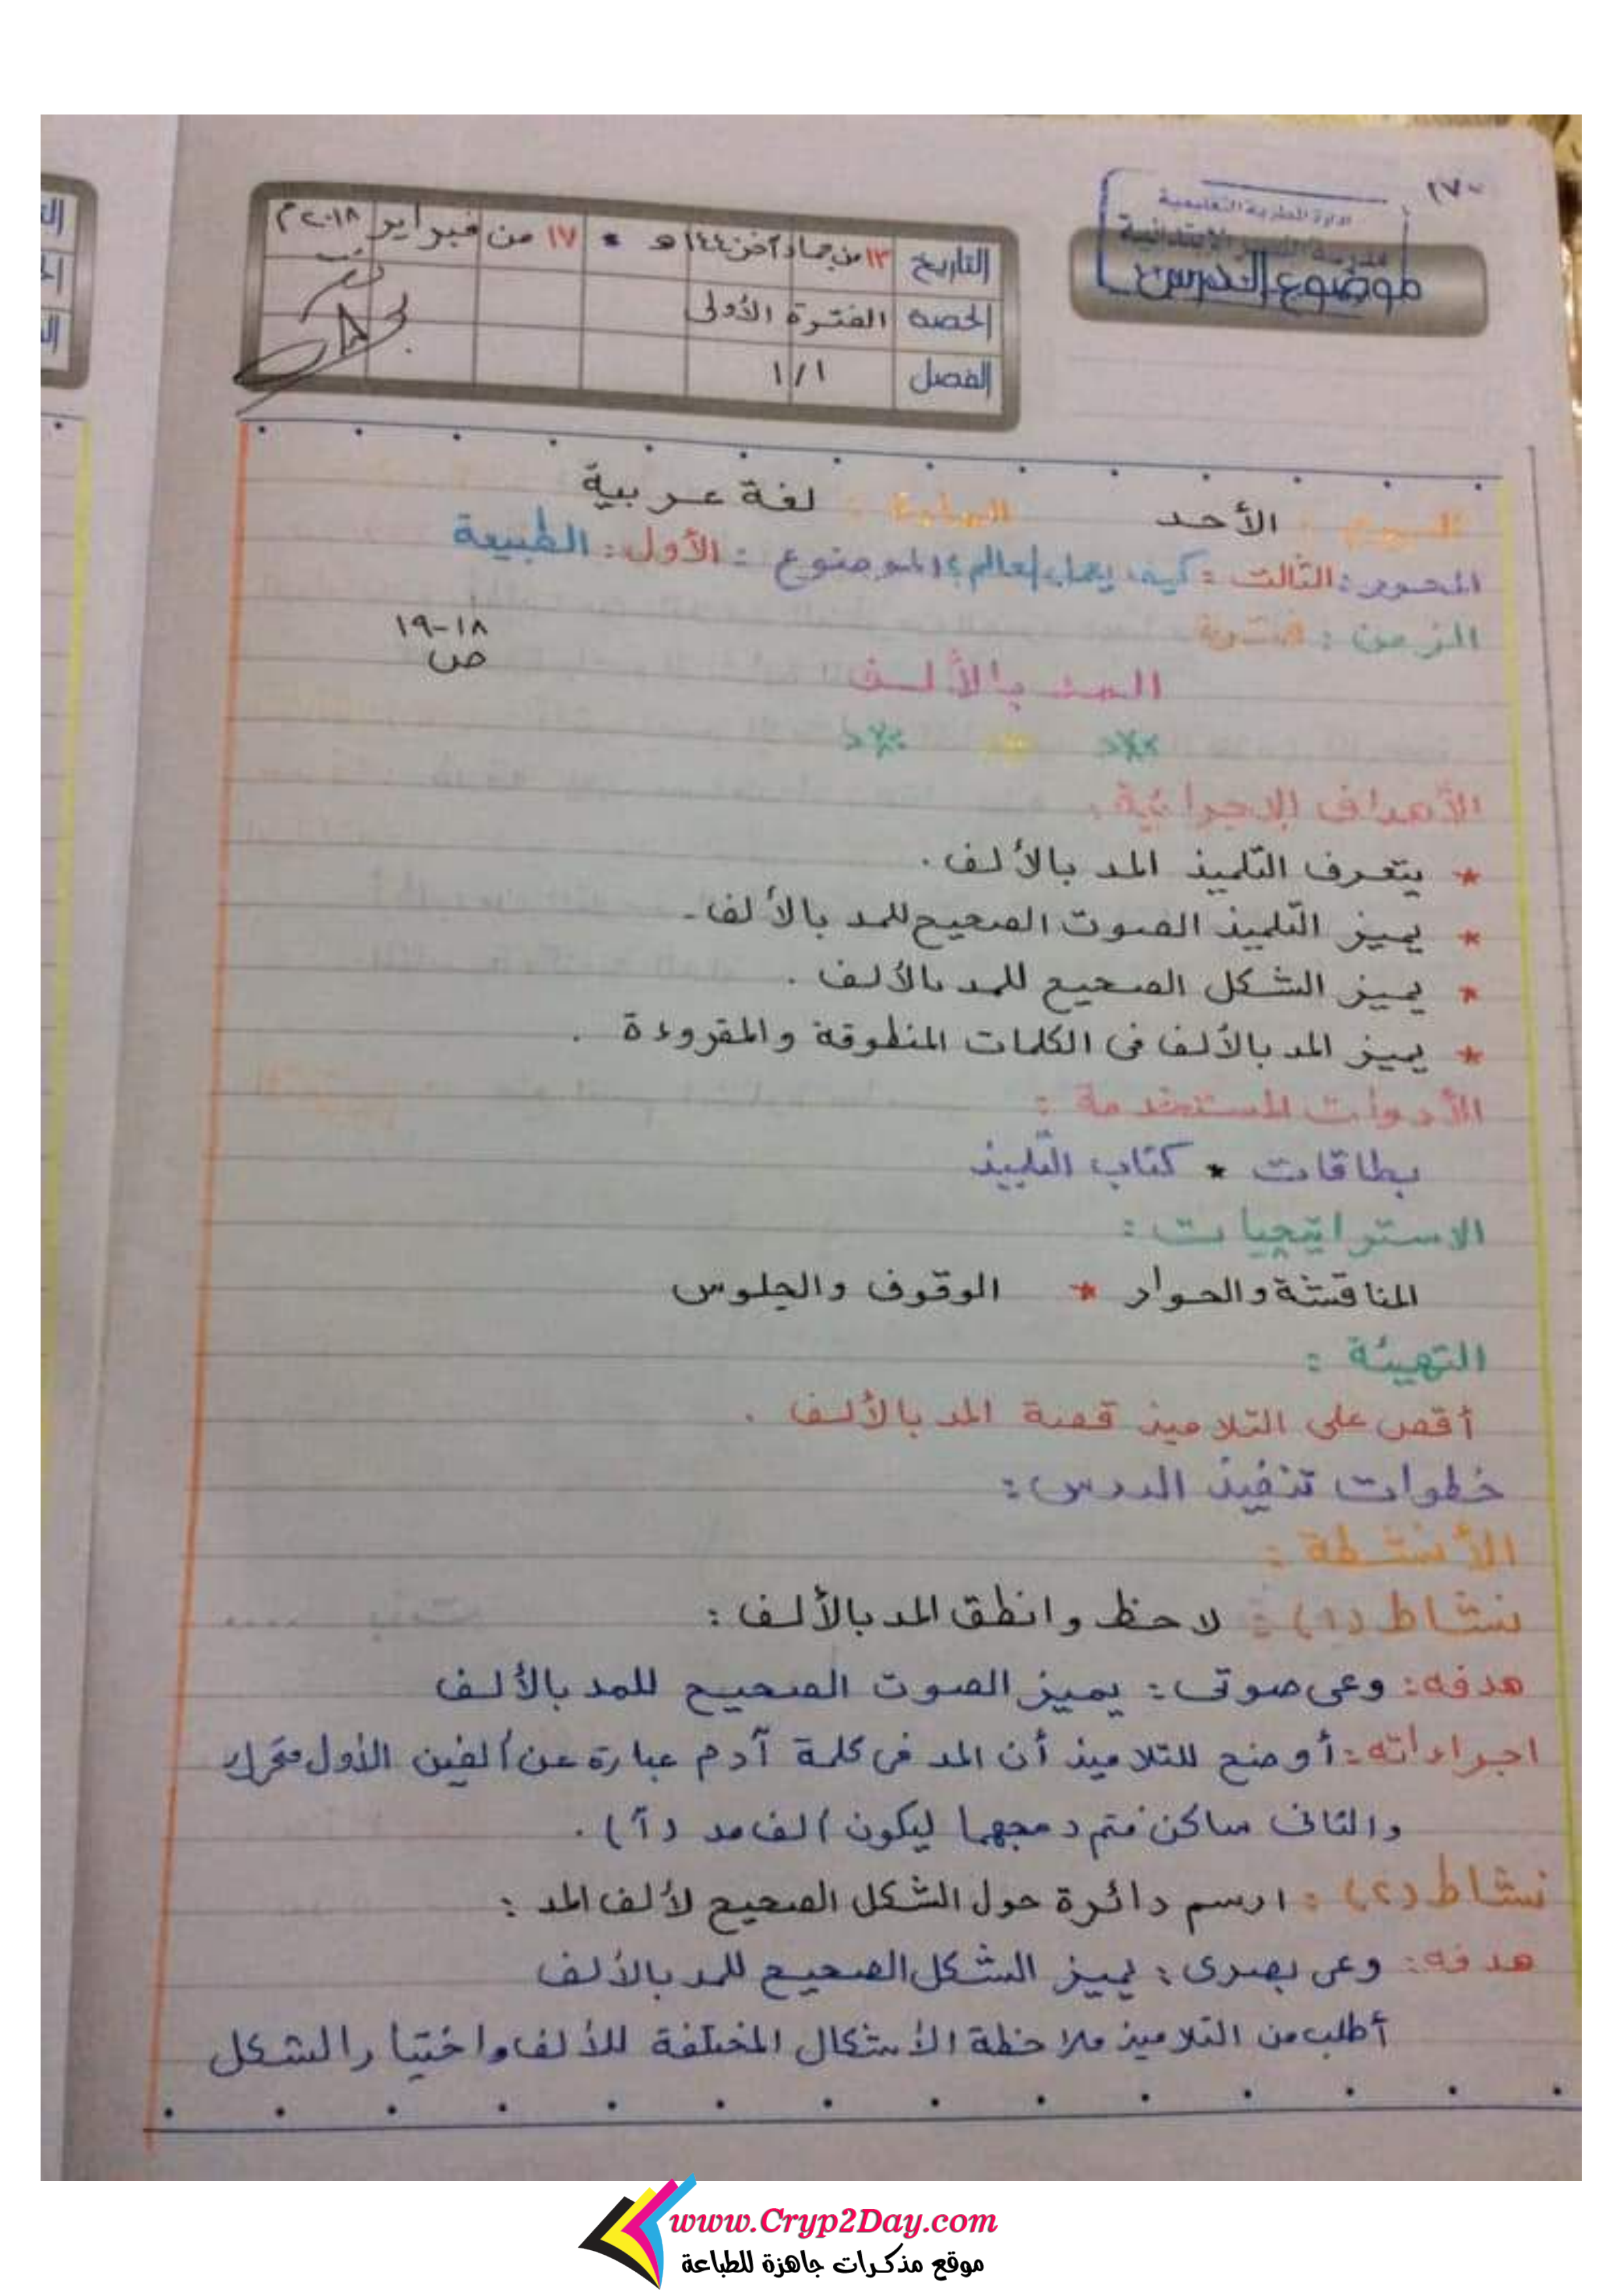 ١٧٠
ادارة المطرية التعليمية
موضوع الدرس
التاريخ ١٣ من جماد آخر ١٤٤ هـ * ١٧ من فبراير ٢٠١٨ م
الحصة الفترة الأولى
الفصل ١/١
اليوم : الأحد المادة : لغة عربية
المحور : الثالث : كيف يعمل العالم ؟ الموضوع : الأول : الطبيعة
الزمن : فترة
١٨-١٩
ص
المد بالألف
الأهداف الإجرائية :
* يتعرف التلميذ المد بالألف .
* يميز التلميذ الصوت الصحيح للمد بالألف .
* يميز الشكل الصحيح للمد بالألف .
* يميز المد بالألف فى الكلمات المنطوقة والمقروءة .
الأدوات المستخدمة :
بطاقات * كتاب التلميذ
الاستراتيجيات :
المناقشة والحوار * الوقوف والجلوس
التهيئة :
أقص على التلاميذ قصة المد بالألف .
خطوات تنفيذ الدرس :
الأنشطة :
نشاط (١) : لاحظ وانطق المد بالألف :
هدفه : وعى صوتى : يميز الصوت الصحيح للمد بالألف
اجراءاته : أوضح للتلاميذ أن المد فى كلمة آدم عبارة عن ألفين الأول متحرك
والثانى ساكن فتم دمجهما ليكون ألف مد (آ) .
نشاط (٢) : ارسم دائرة حول الشكل الصحيح لألف المد :
هدفه : وعى بصرى : يميز الشكل الصحيح للمد بالألف
أطلب من التلاميذ ملاحظة الأشكال المختلفة للألف واختيار الشكل
www.Cryp2Day.com
موقع مذكرات جاهزة للطباعة